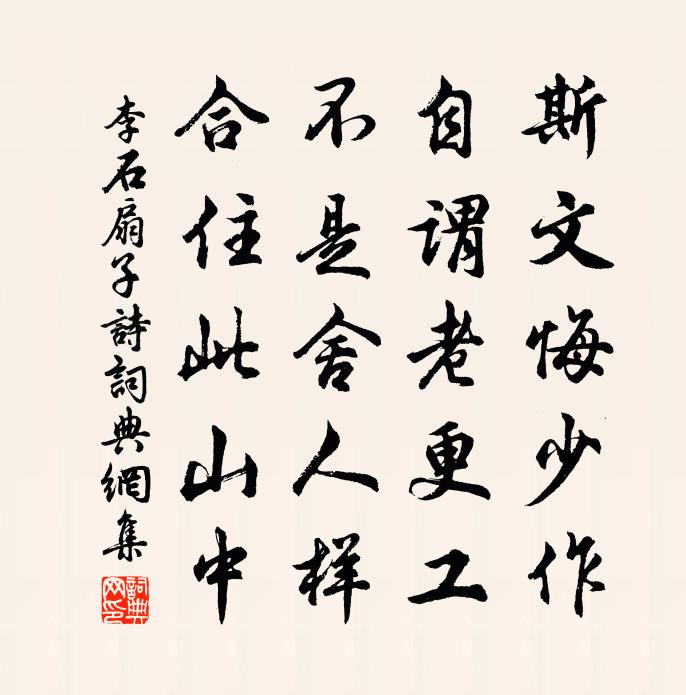 斯文悔少作
自谓老更工
不是舍人样
合住此山中
李石扇子詩詞典網集
詞典网印